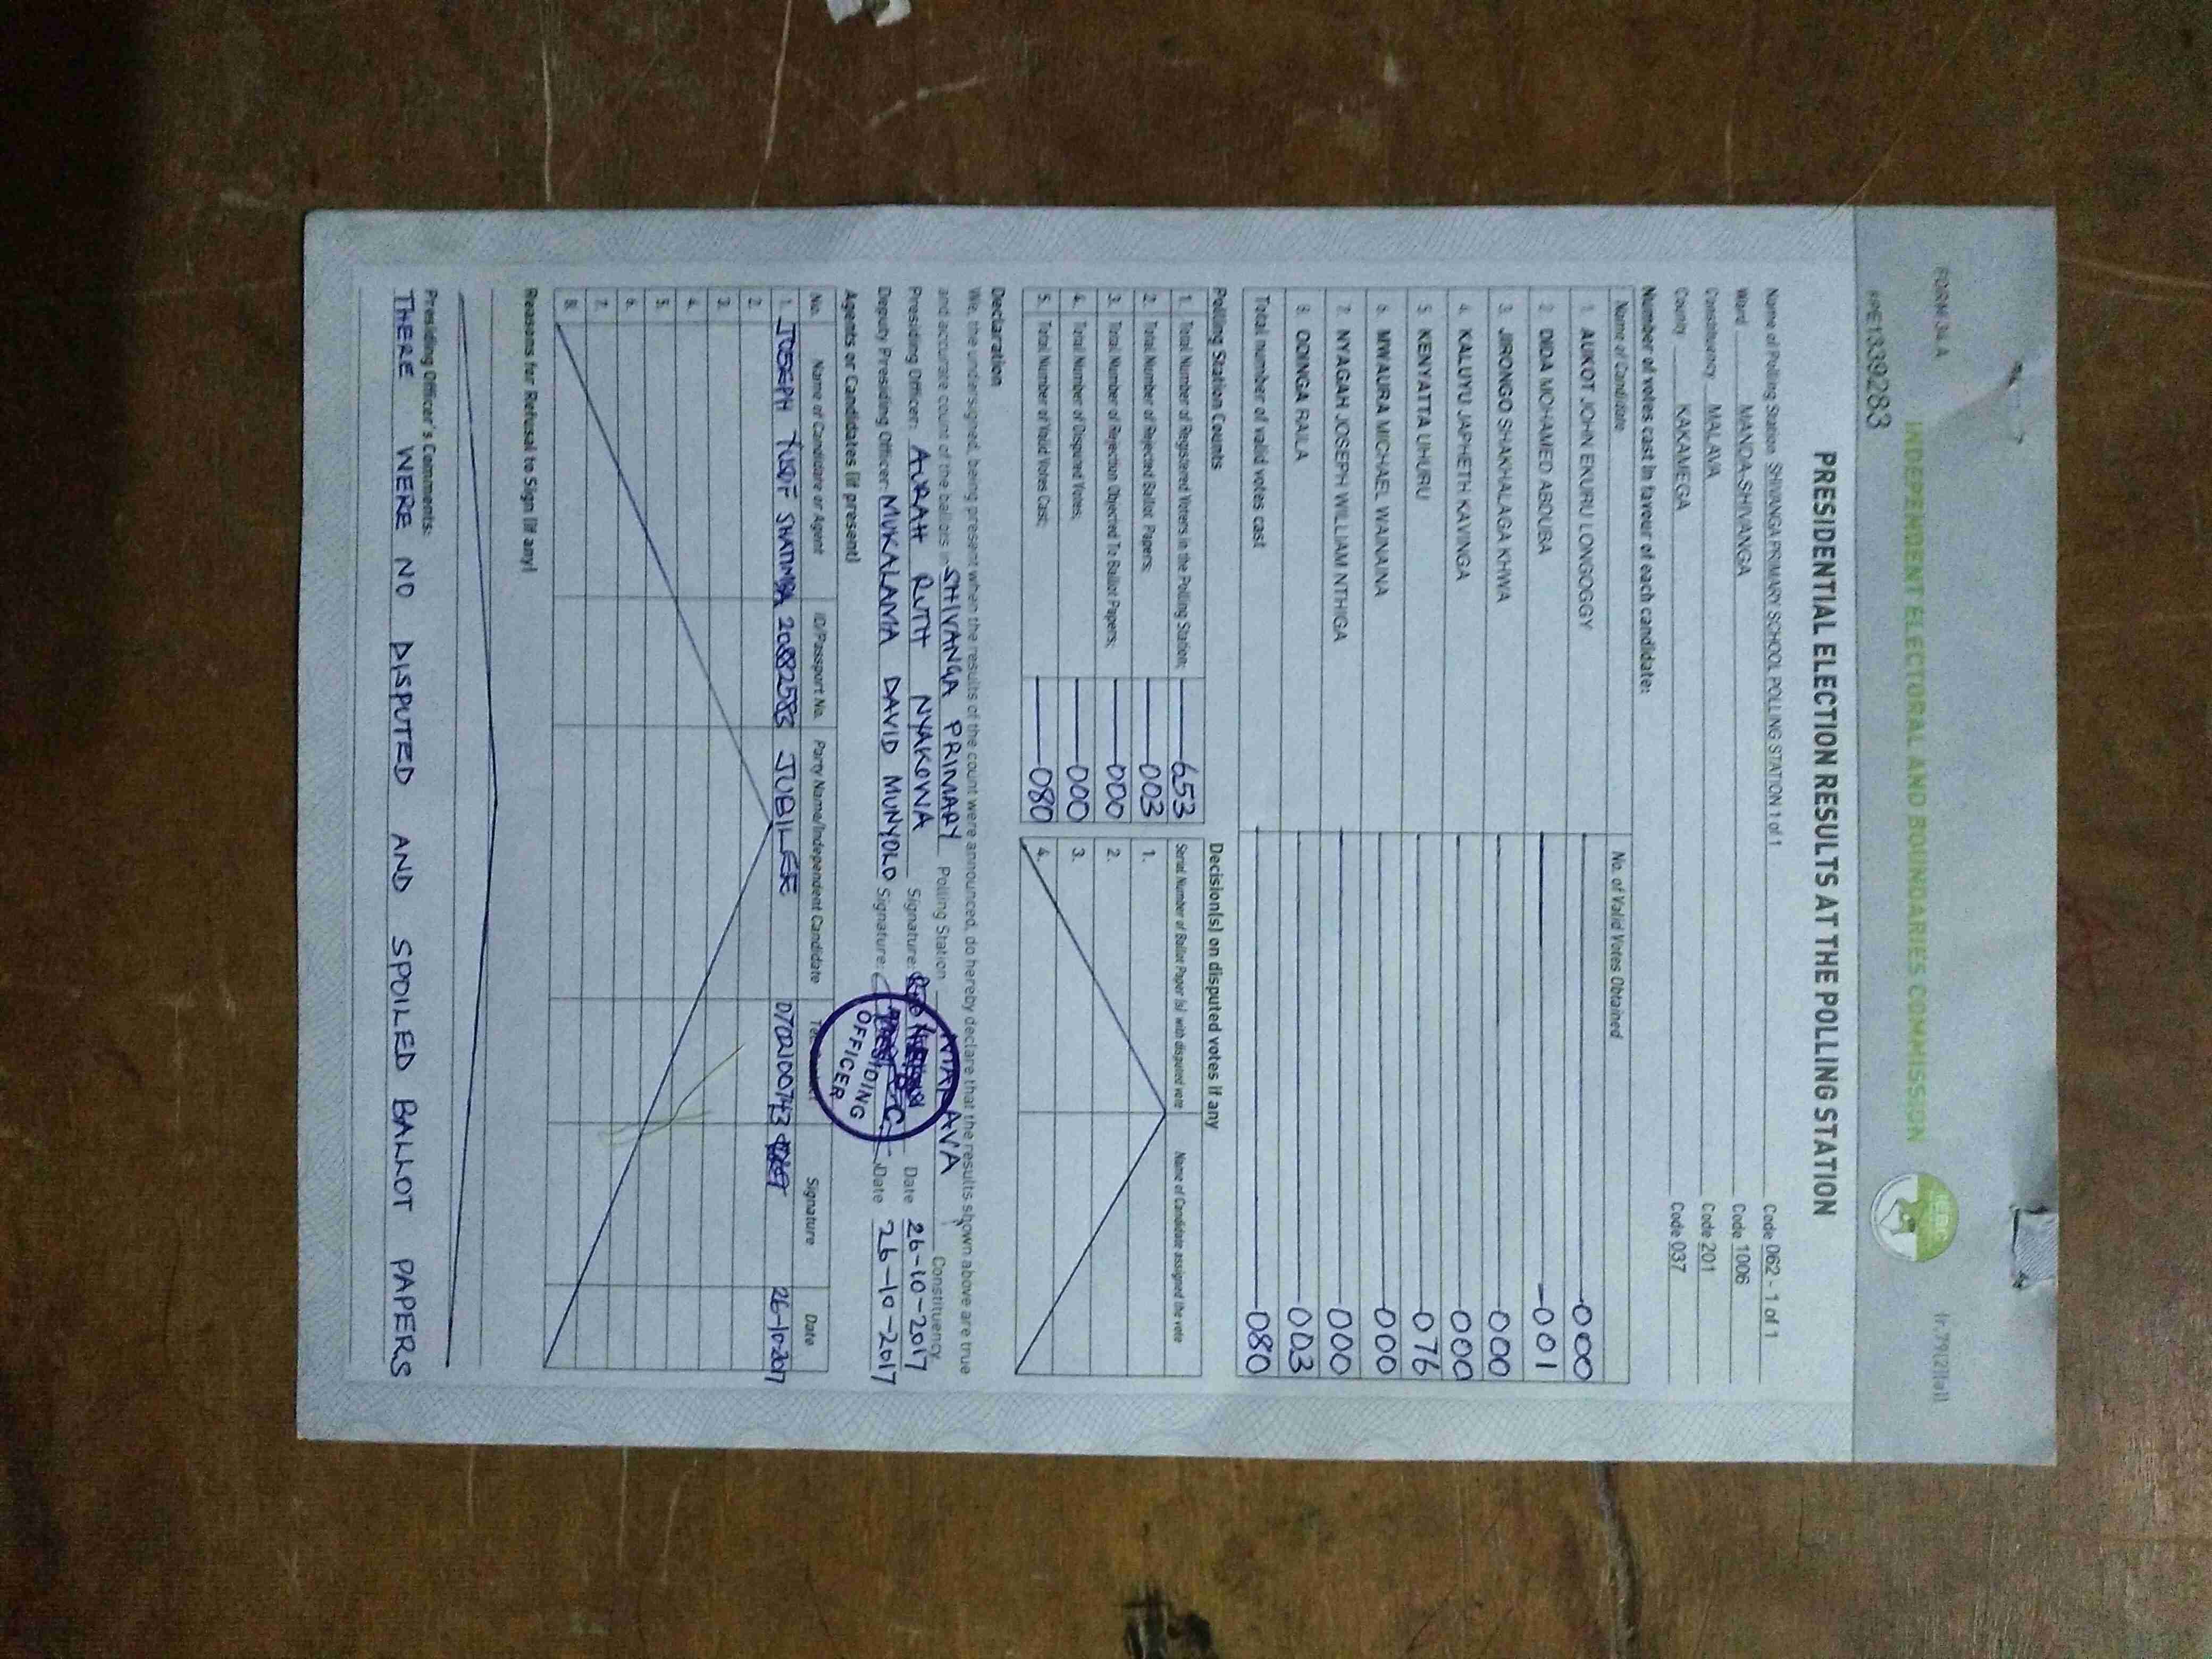 FORM 34 A
INDEPENDENT ELECTORAL AND BOUNDARIES COMMISSION
(r.79(2)(a))
PRESIDENTIAL ELECTION RESULTS AT THE POLLING STATION
Name of Polling Station SHIVANGA PRIMARY SCHOOL POLLING STATION 1 of 1 Code 062 - 1 of 1
Ward MANDA-SHIVANGA Code 1006
Constituency MALAVA Code 201
County KAKAMEGA Code 037
Number of votes cast in favour of each candidate:
Name of Candidate No. of Valid Votes Obtained
1. AUKOT JOHN EKURU LONGOGGY 000
2. DIDA MOHAMED ABDUBA 001
3. JIRONGO SHAKHALAGA KHWA 000
4. KALUYU JAPHETH KAVINGA 000
5. KENYATTA UHURU 076
6. MWAURA MICHAEL WAINAINA 000
7. NYAGAH JOSEPH WILLIAM NTHIGA 000
8. ODINGA RAILA 003
Total number of valid votes cast 080
Polling Station Counts
1. Total Number of Registered Voters in the Polling Station; 653
2. Total Number of Rejected Ballot Papers; 003
3. Total Number of Rejection Objected To Ballot Papers; 000
4. Total Number of Disputed Votes; 000
5. Total Number of Valid Votes Cast; 080
Decision(s) on disputed votes if any
Serial Number of Ballot Paper (s) with disputed vote Name of Candidate assigned the vote
1.
2.
3.
4.
Declaration
We, the undersigned, being present when the results of the count were announced, do hereby declare that the results shown above are true
and accurate count of the ballots in SHIVANGA PRIMARY Polling Station MALAVA Constituency
Presiding Officer: AURAH RUTH NYAKOWA Signature: Date 26-10-2017
Deputy Presiding Officer: MUKALAMA DAVID MUNYOLO Signature: Date 26-10-2017
PRESIDING
OFFICER
Agents or Candidates (if present)
No. Name of Candidate or Agent ID/Passport No. Party Name/Independent Candidate Signature Date
1. JOSEPH 20882583 JUBILEE 0702100743 26-10-2017
2.
3.
4.
5.
6.
7.
8.
Reasons for Refusal to Sign (if any)
Presiding Officer's Comments:
THERE WERE NO DISPUTED AND SPOILED BALLOT PAPERS